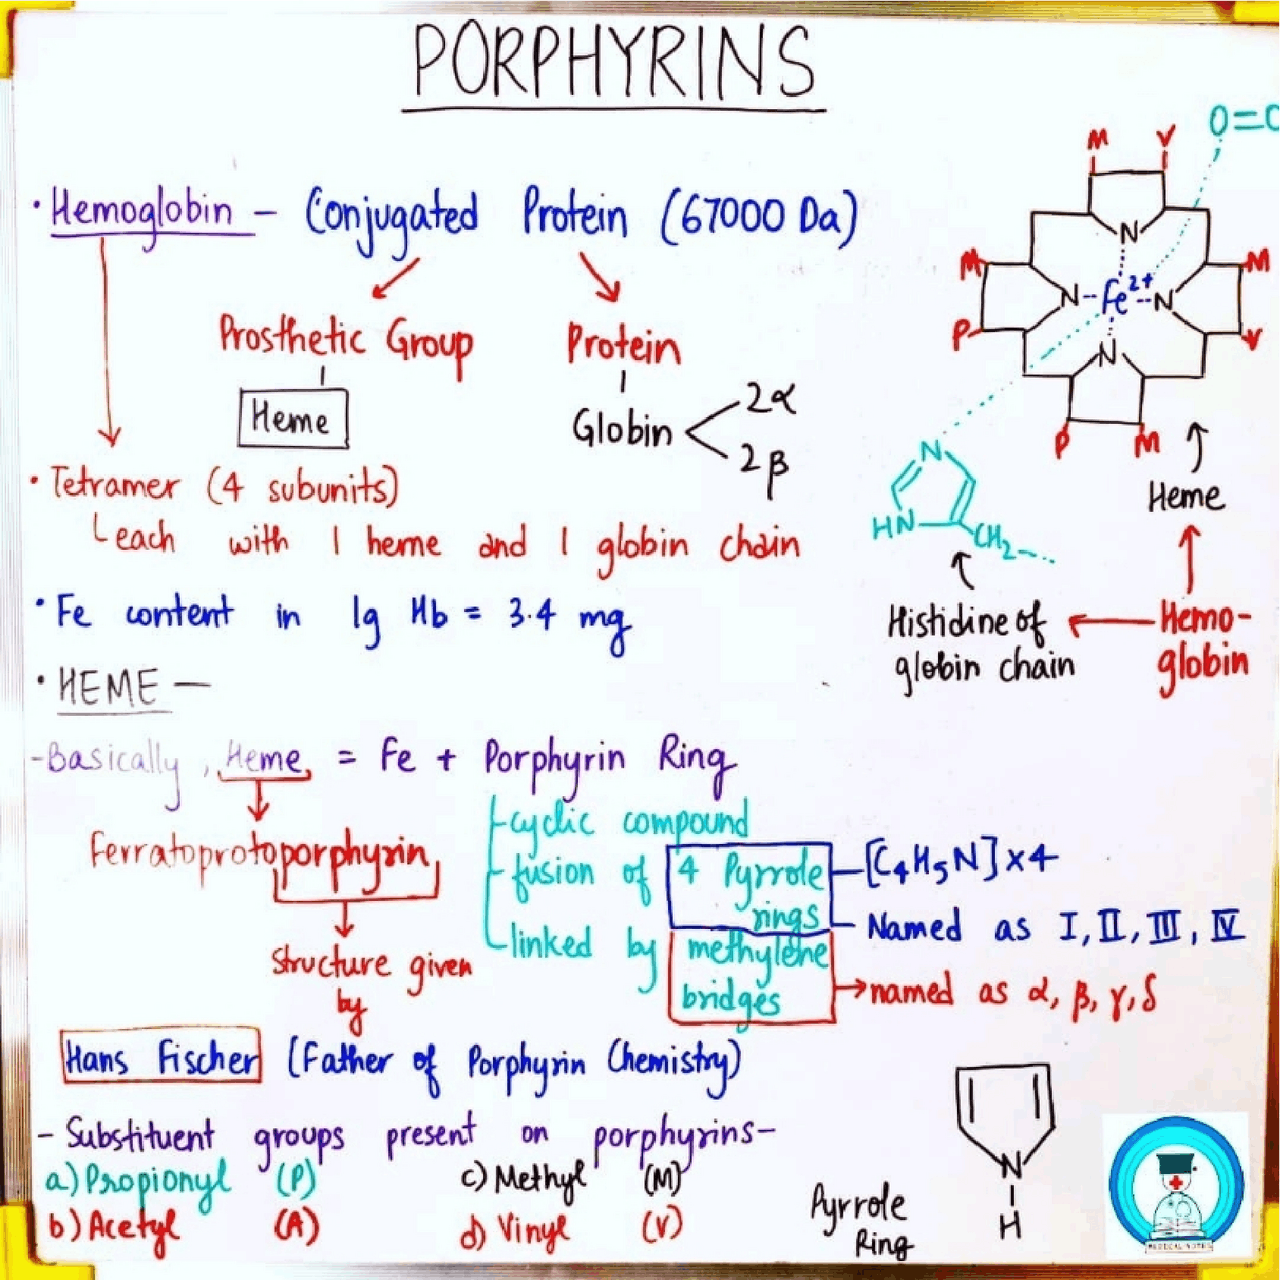 PORPHYRINS
O=O
M V
• Hemoglobin – Conjugated Protein (67000 Da)
N
M M
N--Fe²⁺--N
Prosthetic Group Protein
P V
N
Heme
Globin 2α
2β
P M
N
Heme
• Tetramer (4 subunits)
HN
CH₂
each with 1 heme and 1 globin chain
• Fe content in 1g Hb = 3.4 mg
Histidine of
globin chain
Hemo-
globin
• HEME –
- Basically, Heme = Fe + Porphyrin Ring
cyclic compound
Ferratoprotoporphyrin
fusion of 4 Pyrrole
rings
[C₄H₅N]x4
Named as I, II, III, IV
linked by methylene
bridges
named as α, β, γ, δ
Structure given
by
Hans Fischer (Father of Porphyrin Chemistry)
- Substituent groups present on porphyrins–
a) Propionyl (P) c) Methyl (M)
b) Acetyl (A) d) Vinyl (V)
N
H
Pyrrole
Ring
MEDICAL NOTES